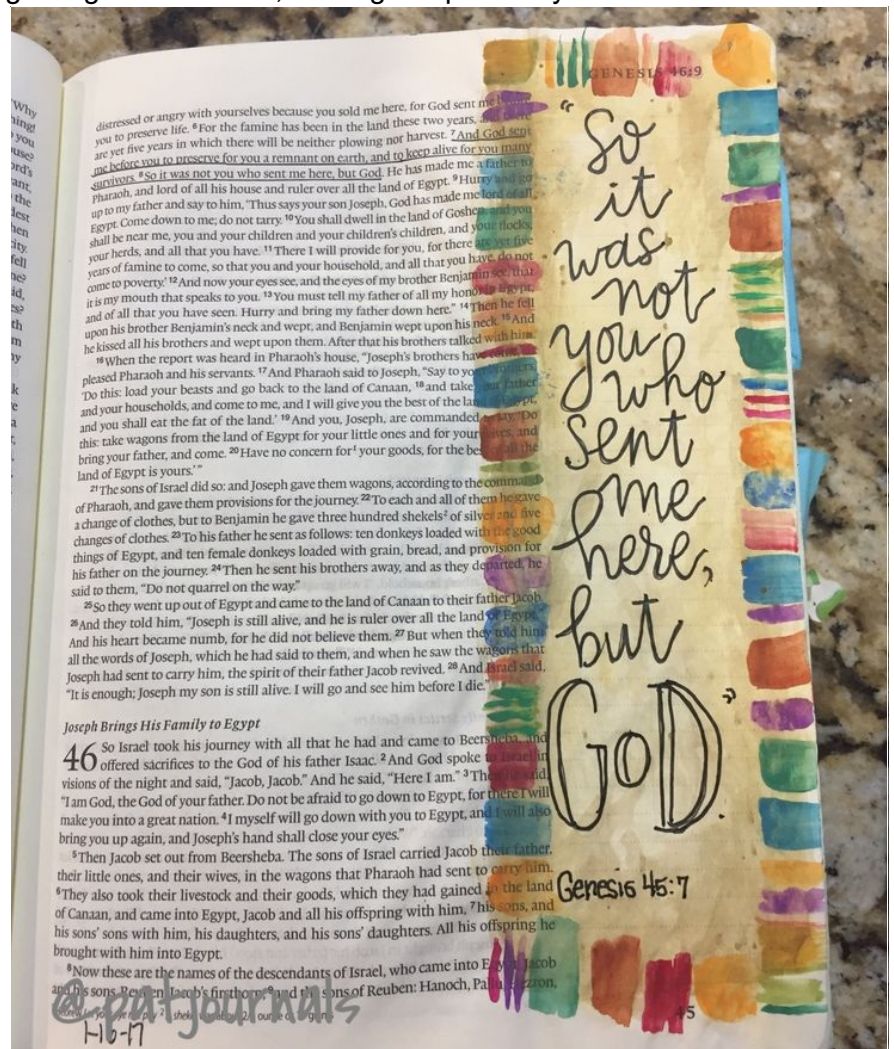 GENESIS 46:9
distressed or angry with yourselves because you sold me here, for God sent me
you to preserve life. 6For the famine has been in the land these two years,
are yet five years in which there will be neither plowing nor harvest. 7And God sent
me before you to preserve for you a remnant on earth, and to keep alive for you many
survivors. 8So it was not you who sent me here, but God. He has made me a father to
Pharaoh, and lord of all his house and ruler over all the land of Egypt. 9Hurry and go
up to my father and say to him, “Thus says your son Joseph, God has made me lord of all
Egypt. Come down to me; do not tarry. 10You shall dwell in the land of Goshen, and you
shall be near me, you and your children and your children's children, and your flocks,
your herds, and all that you have. 11There I will provide for you, for there are yet five
years of famine to come, so that you and your household, and all that you have, do not
come to poverty.’ 12And now your eyes see, and the eyes of my brother Benjamin see, that
it is my mouth that speaks to you. 13You must tell my father of all my honor in Egypt,
and of all that you have seen. Hurry and bring my father down here.” 14Then he fell
upon his brother Benjamin's neck and wept, and Benjamin wept upon his neck. 15And
he kissed all his brothers and wept upon them. After that his brothers talked with him.
16When the report was heard in Pharaoh's house, “Joseph's brothers have come,”
pleased Pharaoh and his servants. 17And Pharaoh said to Joseph, “Say to your brothers,
‘Do this: load your beasts and go back to the land of Canaan, 18and take your father
and your households, and come to me, and I will give you the best of the land of Egypt,
and you shall eat the fat of the land.’ 19And you, Joseph, are commanded to say, ‘Do
this: take wagons from the land of Egypt for your little ones and for your wives, and
bring your father, and come. 20Have no concern for1 your goods, for the best of all the
land of Egypt is yours.’”
21The sons of Israel did so: and Joseph gave them wagons, according to the command
of Pharaoh, and gave them provisions for the journey. 22To each and all of them he gave
a change of clothes, but to Benjamin he gave three hundred shekels2 of silver and five
changes of clothes. 23To his father he sent as follows: ten donkeys loaded with the good
things of Egypt, and ten female donkeys loaded with grain, bread, and provision for
his father on the journey. 24Then he sent his brothers away, and as they departed, he
said to them, “Do not quarrel on the way.”
25So they went up out of Egypt and came to the land of Canaan to their father Jacob.
26And they told him, “Joseph is still alive, and he is ruler over all the land of Egypt.”
And his heart became numb, for he did not believe them. 27But when they told him
all the words of Joseph, which he had said to them, and when he saw the wagons that
Joseph had sent to carry him, the spirit of their father Jacob revived. 28And Israel said,
“It is enough; Joseph my son is still alive. I will go and see him before I die.”
Joseph Brings His Family to Egypt
46 So Israel took his journey with all that he had and came to Beersheba, and
offered sacrifices to the God of his father Isaac. 2And God spoke to Israel in
visions of the night and said, “Jacob, Jacob.” And he said, “Here I am.” 3Then he said,
“I am God, the God of your father. Do not be afraid to go down to Egypt, for there I will
make you into a great nation. 4I myself will go down with you to Egypt, and I will also
bring you up again, and Joseph's hand shall close your eyes.”
5Then Jacob set out from Beersheba. The sons of Israel carried Jacob their father,
their little ones, and their wives, in the wagons that Pharaoh had sent to carry him.
6They also took their livestock and their goods, which they had gained in the land
of Canaan, and came into Egypt, Jacob and all his offspring with him, 7his sons, and
his sons' sons with him, his daughters, and his sons' daughters. All his offspring he
brought with him into Egypt.
8Now these are the names of the descendants of Israel, who came into Egypt, Jacob
and his sons. Reuben, Jacob's firstborn, 9and the sons of Reuben: Hanoch, Pallu, Hezron,
@patjournals
1-16-17
“So
it
was
not
you
who
sent
me
here,
but
GoD.”
Genesis 45:7
45